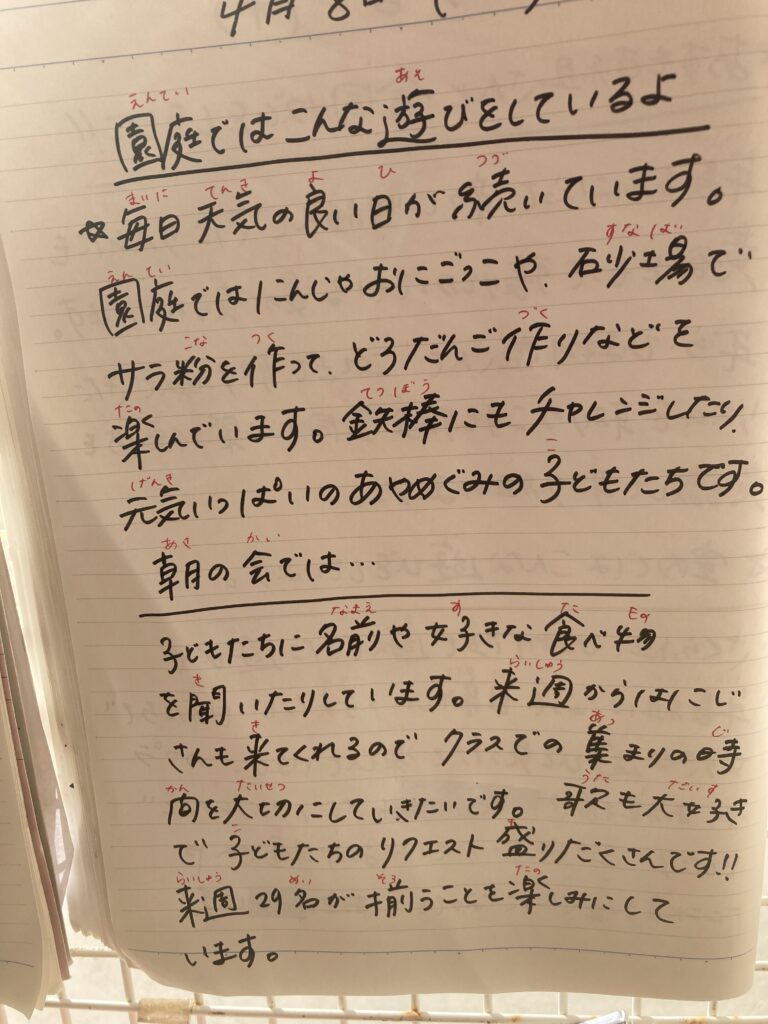 4月8日(
えんてい あそ
園庭ではこんな遊びをしているよ
まいにち てんき よ ひ つづ
☆毎日天気の良い日が続いています。
えんてい すなば
園庭ではにんじゃおにごっこや、石少場で
こな つく づく
サラ粉を作って、どろだんご作りなどを
たの てつぼう
楽しんでいます。鉄棒にもチャレンジしたり、
げんき こ
元気いっぱいのあやめぐみの子どもたちです。
あさ かい
朝の会では…
なまえ す た もの
子どもたちに名前や好きな食べ物
き らいしゅう
を聞いたりしています。来週からはにこじ
き あつ じ
さんも来てくれるのでクラスでの集まりの時
かん たいせつ うた だいす
間を大切にしていきたいです。歌も大好き
こ も
で子どもたちのリクエスト盛りだくさんです!!
らいしゅう めい そろ たの
来週29名が揃うことを楽しみにして
います。